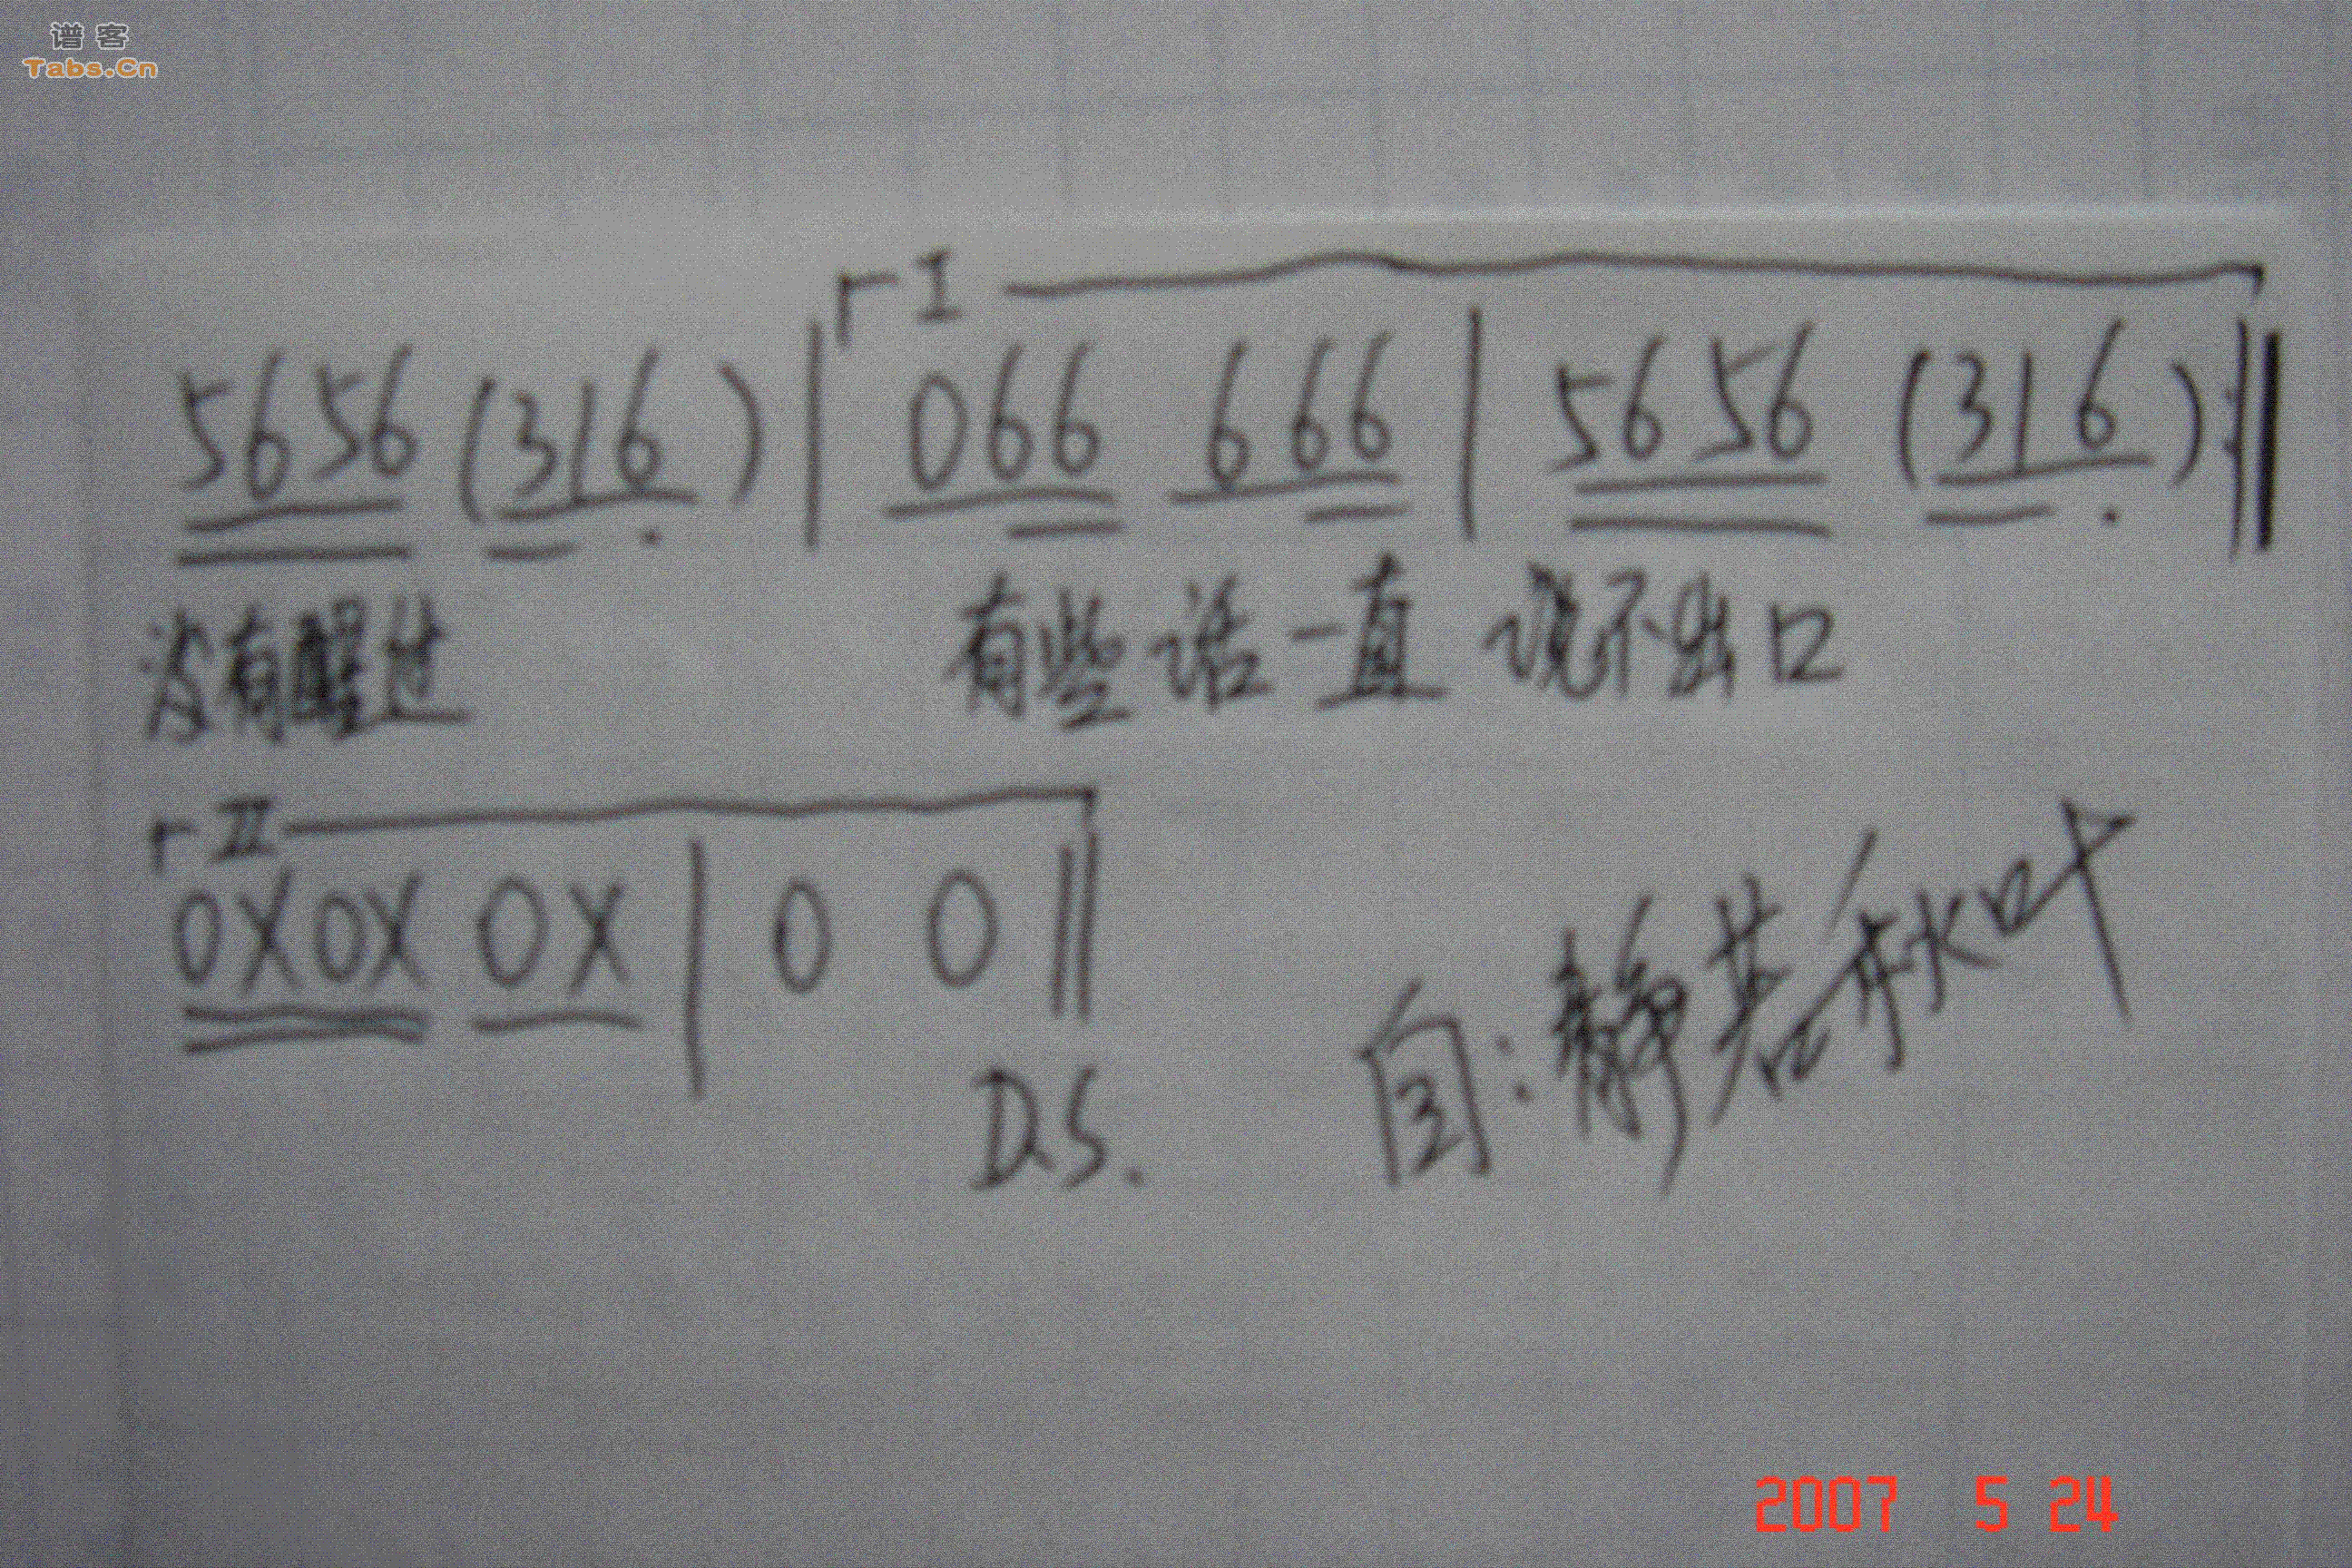 谱客
Tabs.Cn
I
5656 (316) | 066 666 | 5656 (316) :||
没有醒过 有些话一直 说不出口
II
0X0X 0X | 0 0 ||
D.S.
自:静若秋叶
2007 5 24